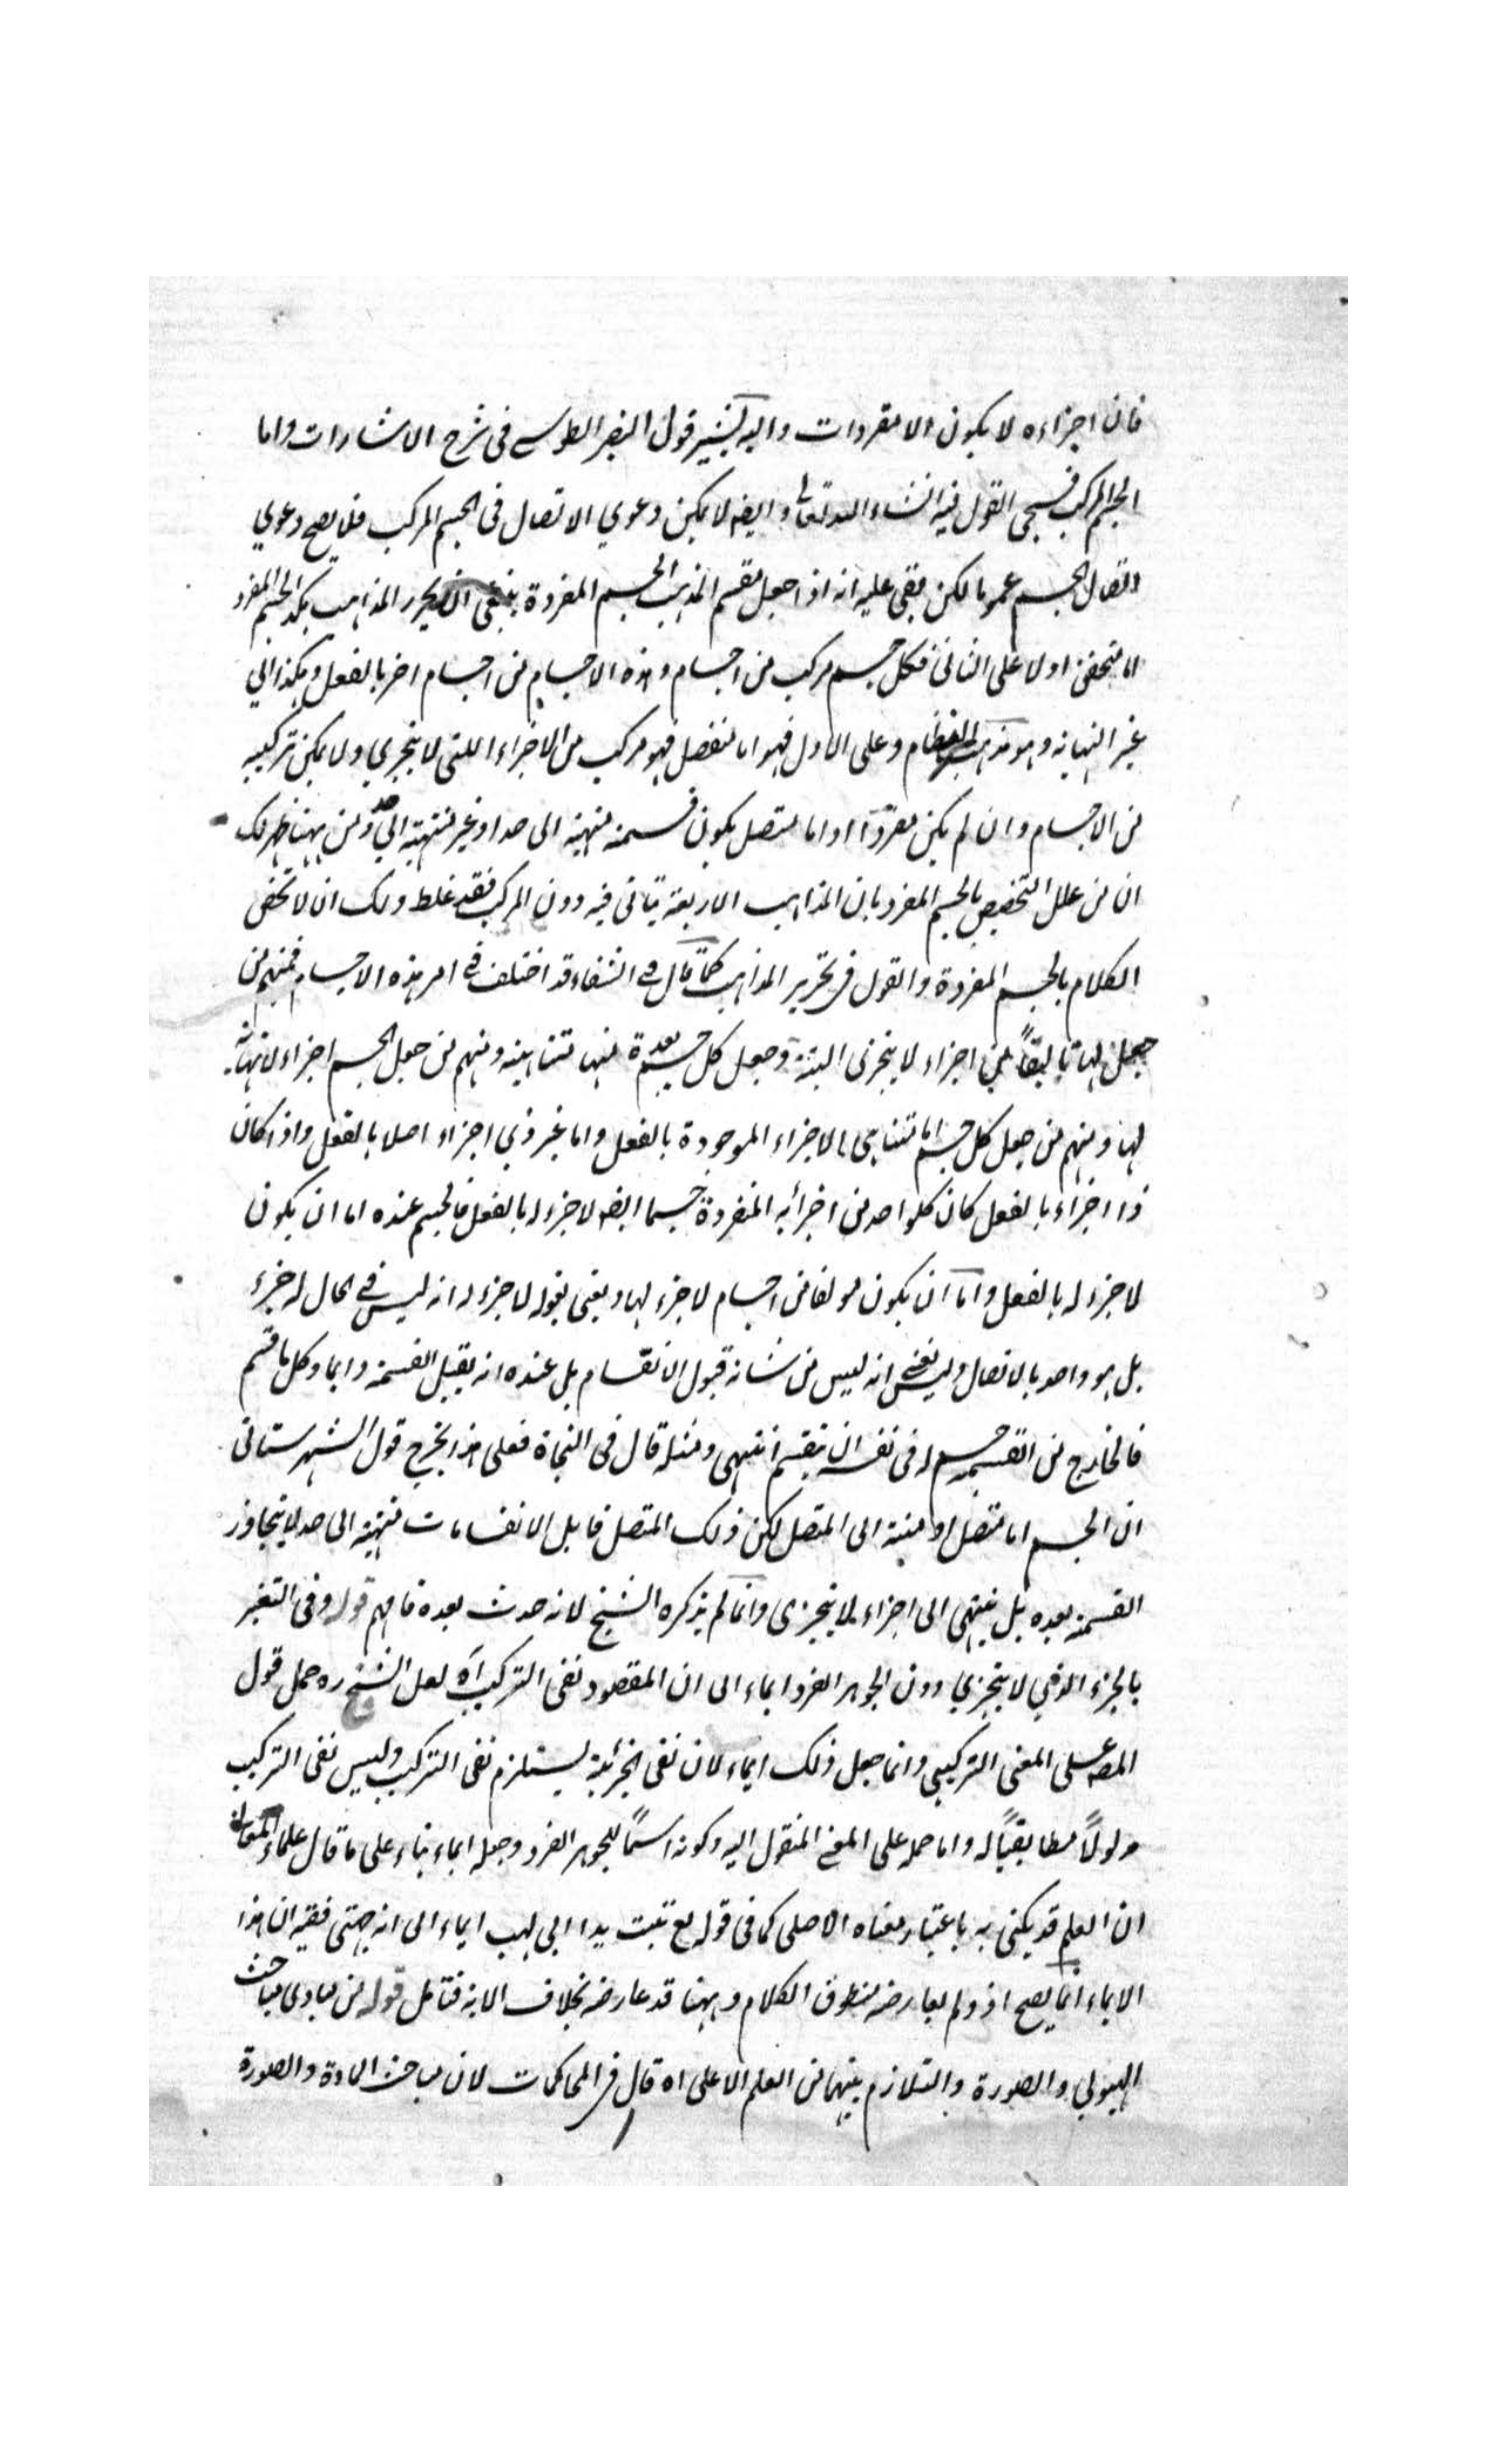 فان اجزاءه لا يكون الا مقردات واليه يشير قول النصير الطوسے فى شرح الاشارات واما
الجسم المركب فسيجى القول فيه انشاء الله تعالى وايضه لا يمكن دعوي الاتصال فى الجسم المركب فلا يصح دعوي
اتصال الجسم عموما لكن بقى عليه انه اذا جعل مقسم المذاهب الجسم المفردة ينبغى ان يحرر المذاهب هكذا الجسم المفرد
اما متحقق اولا على الثانى فكل جسم مركب من اجسام وهذه الاجسام من اجسام اخر بالفعل وهكذا الي
غير النهاية وهو مذهب النظام وعلى الاول فهو اما منفصل فهو مركب من الاجزاء اللتى لا يتجزي ولا يمكن تركيبه
من الاجسام وان لم يكن مفردًا او اما متصل يكون قسمته منتهية الى حد او غير منتهية الي حد ومن ههنا ظهر لك
ان من علل التخصيص بالجسم المفرد بان المذاهب الاربعة يتأتى فيه دون المركب فقد غلط ولك ان لا تخص
الكلام بالجسم المفردة والقول فى تحرير المذاهب كما قال فے الشفاء قد اختلف فے امر هذه الاجسام فمنهم من
جعل لها تاليفًا من اجزاء لا يتجزى البتة وجعل كل جسم بعدة منها متناهية ومنهم من جعل الجسم اجزاء لا نهاية
لها ومنهم من جعل كل جسم اما متناهى الاجزاء الموجودة بالفعل واما غير ذي اجزاء اصلا بالفعل واذا كان
ذا اجزاء بالفعل كان كلواحد من اجزائه المنفردة جسما ايضه لا جزء له بالفعل فالجسم عنده اما ان يكون
لا جزء له بالفعل واما ان يكون مولفا من اجسام لا جزء لها ويعنى بقوله لا جزء له انه ليس فے الحال له جزء
بل هو واحد بالاتصال وليس يعنے انه ليس من شانه قبول الانقسام بل عنده انه يقبل القسمة دايما وكل ما قسم
فالخارج من القسمة جسم له فى نفسه ان ينقسم انتهى ومثله قال فى النجاة فعلى هذا يخرج قول الشهرستانى
ان الجسم اما متصل او منته الى المتصل لكن ذلك المتصل قابل الانقسامات منتهية الى حد لا يتجاوز
القسمة بعده بل ينتهى الى اجزاء لا يتجزى وانما لم يذكره الشيخ لانه حدث بعده فافهم قوله وفى التعبير
بالجزء الذي لا يتجزي دون الجوهر الفرد ايماء الى ان المقصود نفى التركيب آه لعل الشيخ ره حمل قول
المصه على المعنى التركيبى وانما جعل ذلك ايماء لان نفى الجزئية يستلزم نفى التركيب وليس نفى التركيب
مدلولًا مطابقيًا له واما حمله على المعنے المنقول اليه وكونه اسمًا للجوهر الفرد وجعله ايماء بناء على ما قال علماء المعانى
ان العلم قد يكنى به باعتبار معناه الاصلى كما فى قوله تع تبت يدا ابى لهب ايماء الى انه جهنمى ففيه ان هذا
الايماء انما يصح اذ ولم يعارضه منطوق الكلام وههنا قد عارضه بخلاف الاية فتامل قوله من مبادى مباحث
الهيولى والصورة والتلازم بينهما من العلم الاعلى اه قال فى المحاكمات لان مباحث المادة والصورة